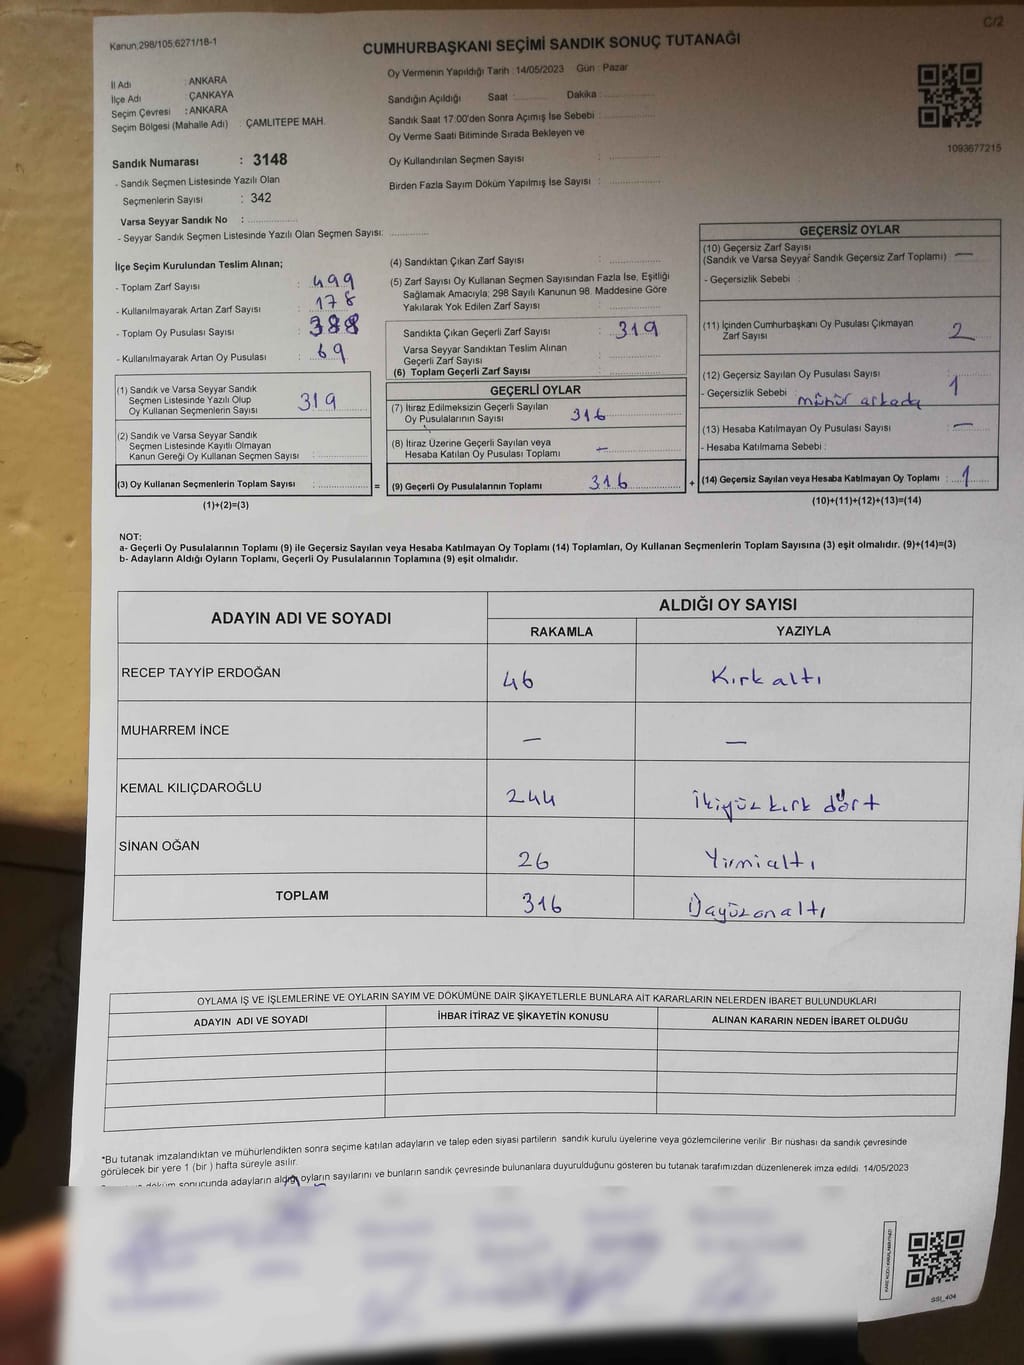 C/2
Kanun,298/105;6271/18-1
CUMHURBAŞKANI SEÇİMİ SANDIK SONUÇ TUTANAĞI
İl Adı : ANKARA
İlçe Adı : ÇANKAYA
Seçim Çevresi : ANKARA
Seçim Bölgesi (Mahalle Adı) : ÇAMLITEPE MAH.
Sandık Numarası : 3148
- Sandık Seçmen Listesinde Yazılı Olan
Seçmenlerin Sayısı : 342
Varsa Seyyar Sandık No :
- Seyyar Sandık Seçmen Listesinde Yazılı Olan Seçmen Sayısı:
Oy Vermenin Yapıldığı Tarih : 14/05/2023 Gün : Pazar
Sandığın Açıldığı Saat : Dakika :
Sandık Saat 17:00'den Sonra Açımış İse Sebebi :
Oy Verme Saati Bitiminde Sırada Bekleyen ve
Oy Kullandırılan Seçmen Sayısı :
Birden Fazla Sayım Döküm Yapılmış İse Sayısı :
1093677215
İlçe Seçim Kurulundan Teslim Alınan;
- Toplam Zarf Sayısı : 499
- Kullanılmayarak Artan Zarf Sayısı : 178
- Toplam Oy Pusulası Sayısı : 388
- Kullanılmayarak Artan Oy Pusulası : 69
(1) Sandık ve Varsa Seyyar Sandık
Seçmen Listesinde Yazılı Olup
Oy Kullanan Seçmenlerin Sayısı : 319
(2) Sandık ve Varsa Seyyar Sandık
Seçmen Listesinde Kayıtlı Olmayan
Kanun Gereği Oy Kullanan Seçmen Sayısı :
(3) Oy Kullanan Seçmenlerin Toplam Sayısı :
(1)+(2)=(3)
=
(4) Sandıktan Çıkan Zarf Sayısı :
(5) Zarf Sayısı Oy Kullanan Seçmen Sayısından Fazla İse, Eşitliği
Sağlamak Amacıyla; 298 Sayılı Kanunun 98. Maddesine Göre
Yakılarak Yok Edilen Zarf Sayısı :
Sandıkta Çıkan Geçerli Zarf Sayısı : 319
Varsa Seyyar Sandıktan Teslim Alınan
Geçerli Zarf Sayısı :
(6) Toplam Geçerli Zarf Sayısı :
GEÇERLİ OYLAR
(7) İtiraz Edilmeksizin Geçerli Sayılan
Oy Pusulalarının Sayısı : 316
(8) İtiraz Üzerine Geçerli Sayılan veya
Hesaba Katılan Oy Pusulası Toplamı : —
(9) Geçerli Oy Pusulalarının Toplamı : 316
+
GEÇERSİZ OYLAR
(10) Geçersiz Zarf Sayısı
(Sandık ve Varsa Seyyar Sandık Geçersiz Zarf Toplamı) : —
- Geçersizlik Sebebi :
(11) İçinden Cumhurbaşkanı Oy Pusulası Çıkmayan
Zarf Sayısı : 2
(12) Geçersiz Sayılan Oy Pusulası Sayısı : 1
- Geçersizlik Sebebi : mühür arkada
(13) Hesaba Katılmayan Oy Pusulası Sayısı : —
- Hesaba Katılmama Sebebi :
(14) Geçersiz Sayılan veya Hesaba Katılmayan Oy Toplamı : 1
(10)+(11)+(12)+(13)=(14)
NOT:
a- Geçerli Oy Pusulalarının Toplamı (9) ile Geçersiz Sayılan veya Hesaba Katılmayan Oy Toplamı (14) Toplamları, Oy Kullanan Seçmenlerin Toplam Sayısına (3) eşit olmalıdır. (9)+(14)=(3)
b- Adayların Aldığı Oyların Toplamı, Geçerli Oy Pusulalarının Toplamına (9) eşit olmalıdır.
ADAYIN ADI VE SOYADI
ALDIĞI OY SAYISI
RAKAMLA YAZIYLA
RECEP TAYYİP ERDOĞAN 46 Kırk altı
MUHARREM İNCE — —
KEMAL KILIÇDAROĞLU 244 İkiyüz kırk dört
SİNAN OĞAN 26 Yirmi altı
TOPLAM 316 Üçyüzonaltı
OYLAMA İŞ VE İŞLEMLERİNE VE OYLARIN SAYIM VE DÖKÜMÜNE DAİR ŞİKAYETLERLE BUNLARA AİT KARARLARIN NELERDEN İBARET BULUNDUKLARI
ADAYIN ADI VE SOYADI İHBAR İTİRAZ VE ŞİKAYETİN KONUSU ALINAN KARARIN NEDEN İBARET OLDUĞU
*Bu tutanak imzalandıktan ve mühürlendikten sonra seçime katılan adayların ve talep eden siyasi partilerin sandık kurulu üyelerine veya gözlemcilerine verilir. Bir nüshası da sandık çevresinde
görülecek bir yere 1 (bir ) hafta süreyle asılır.
döküm sonucunda adayların aldığı oyların sayılarını ve bunların sandık çevresinde bulunanlara duyurulduğunu gösteren bu tutanak tarafımızdan düzenlenerek imza edildi. 14/05/2023
SSI_404